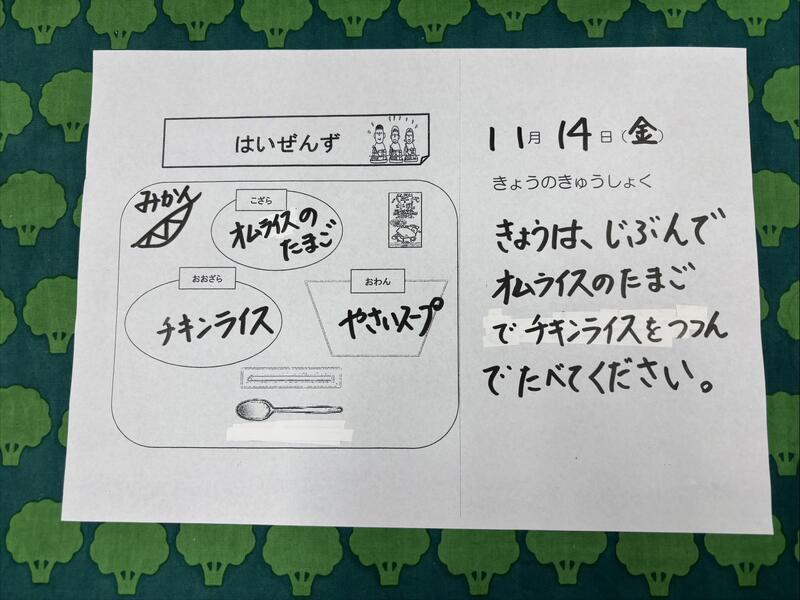 はいぜんず
みかん
こざら
オムライスの
たまご
おおざら
チキンライス
おわん
やさいスープ
11月14日(金)
きょうのきゅうしょく
きょうは、じぶんで
オムライスのたまご
でチキンライスをつつん
でたべてください。